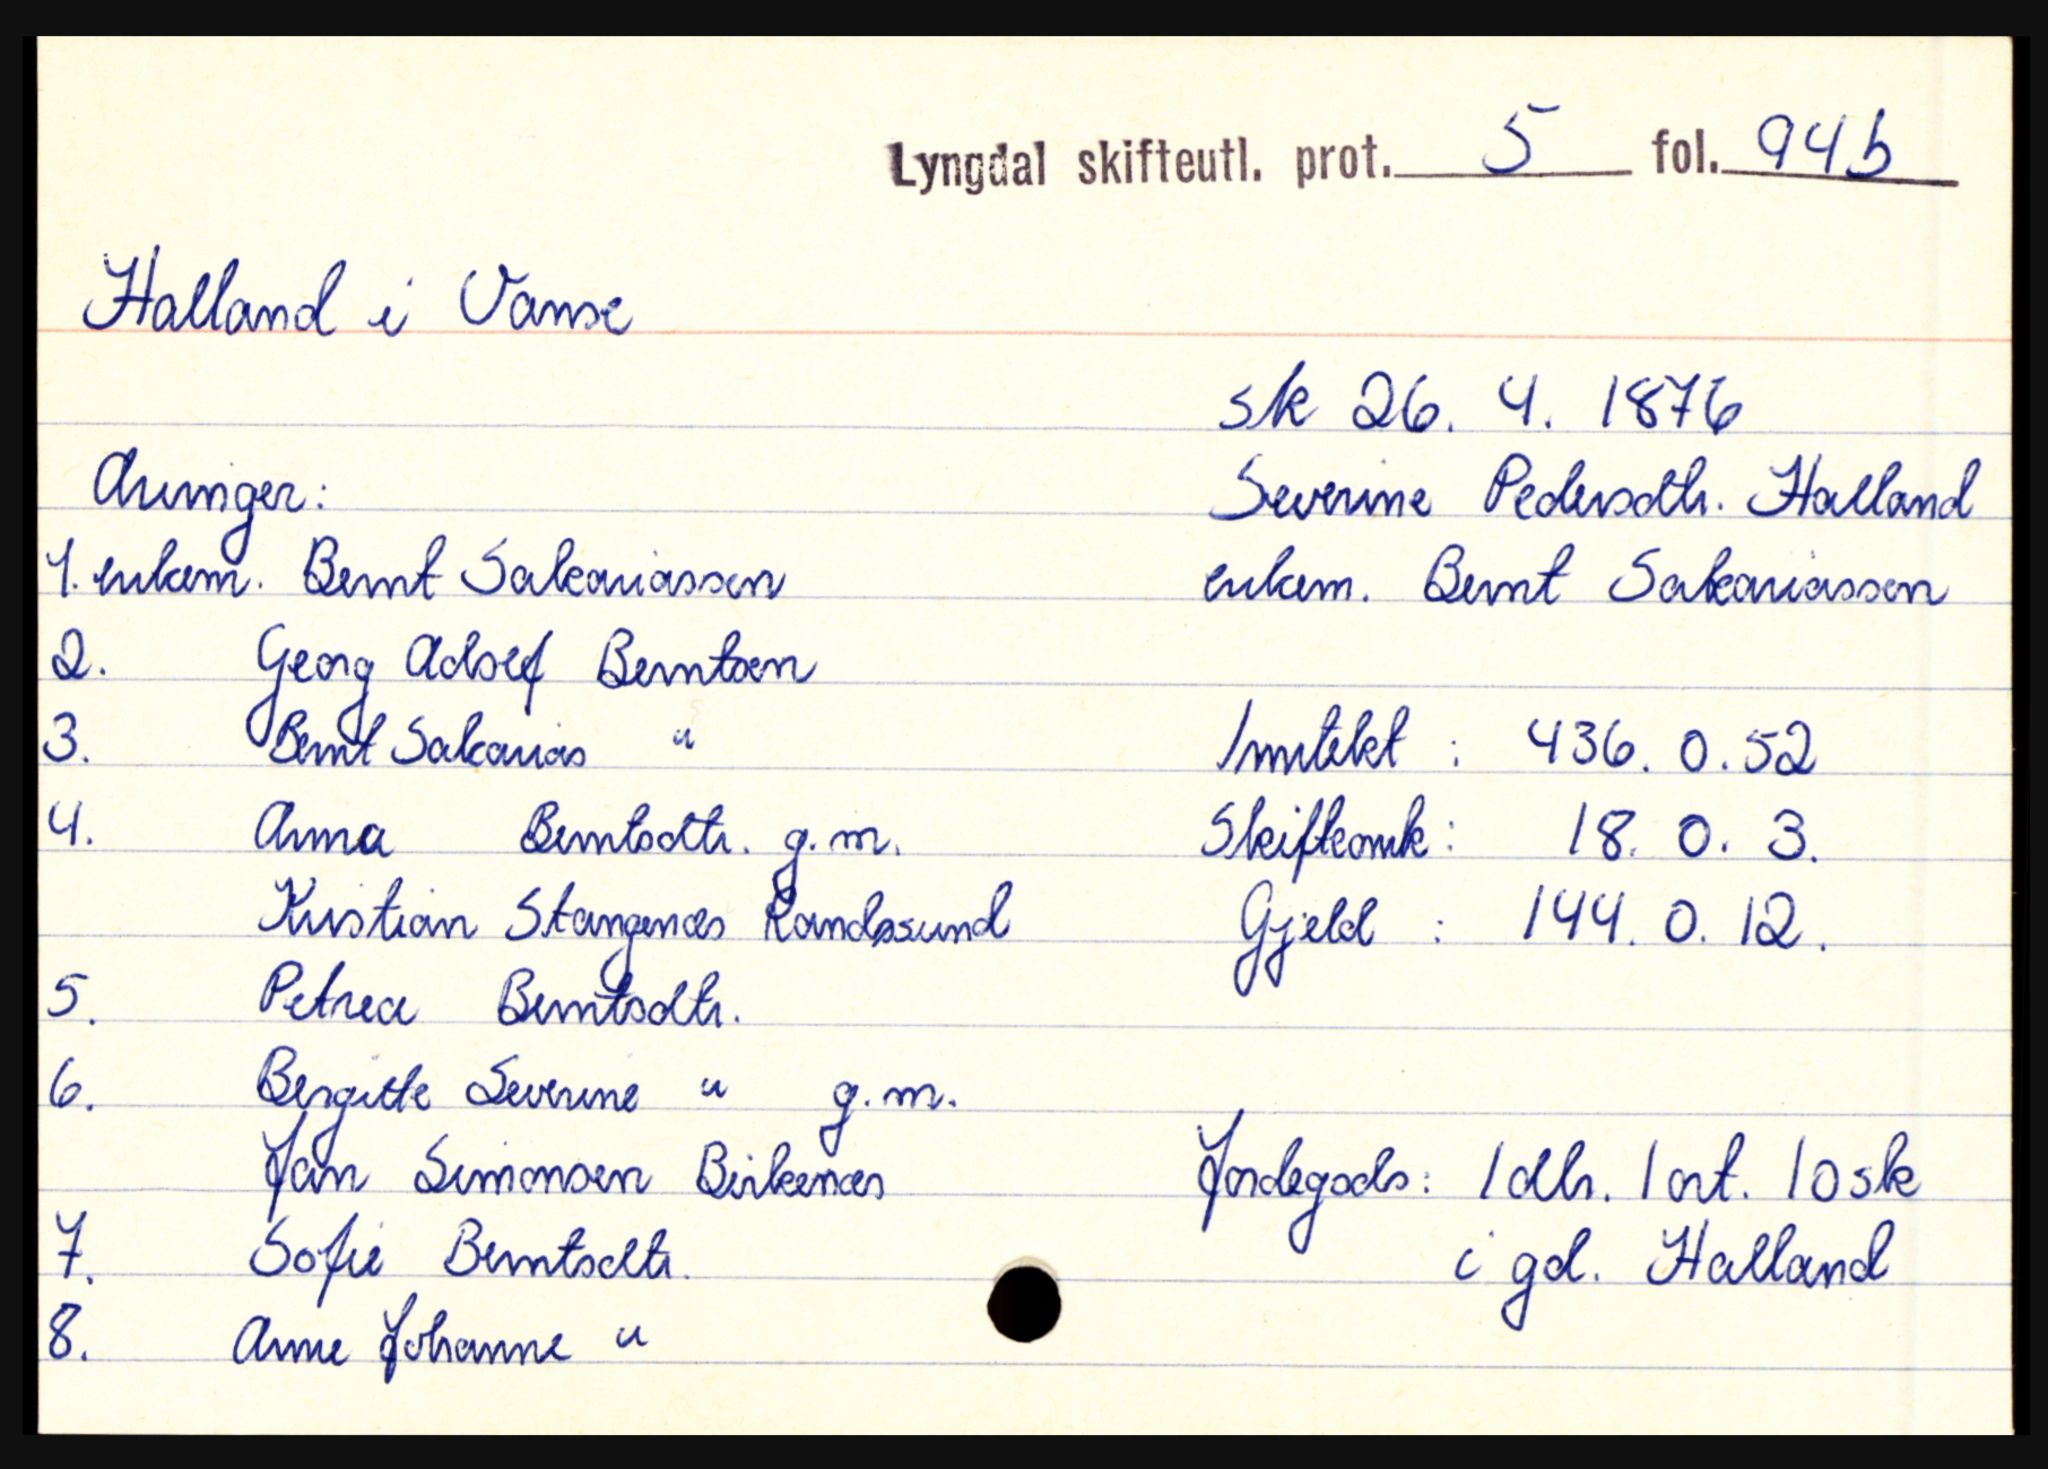 Lyngdal skifteutl. prot. 5 fol. 94b
Halland i Vanse
sk 26. 4. 1876
Arvinger:
Severine Pedersdtr. Halland
1. enkem. Bernt Sakariassen
enkem. Bernt Sakariassen
2. Georg Adolf Berntsen
3. Bernt Sakarias "
Inntekt : 436. 0. 52
4. Anna Berntsdtr. g.m.
Skifteomk: 18. 0. 3.
Kristian Stangenæs Randøsund
Gjeld : 144. 0. 12.
5. Petrea Berntsdtr.
6. Bergitte Severine " g.m.
Jan Simonsen Birkenæs
Jordegods: 1 dlr. 1 ort. 10 sk
7. Sofie Berntsdtr.
i gd. Halland
8. Anne Johanne "